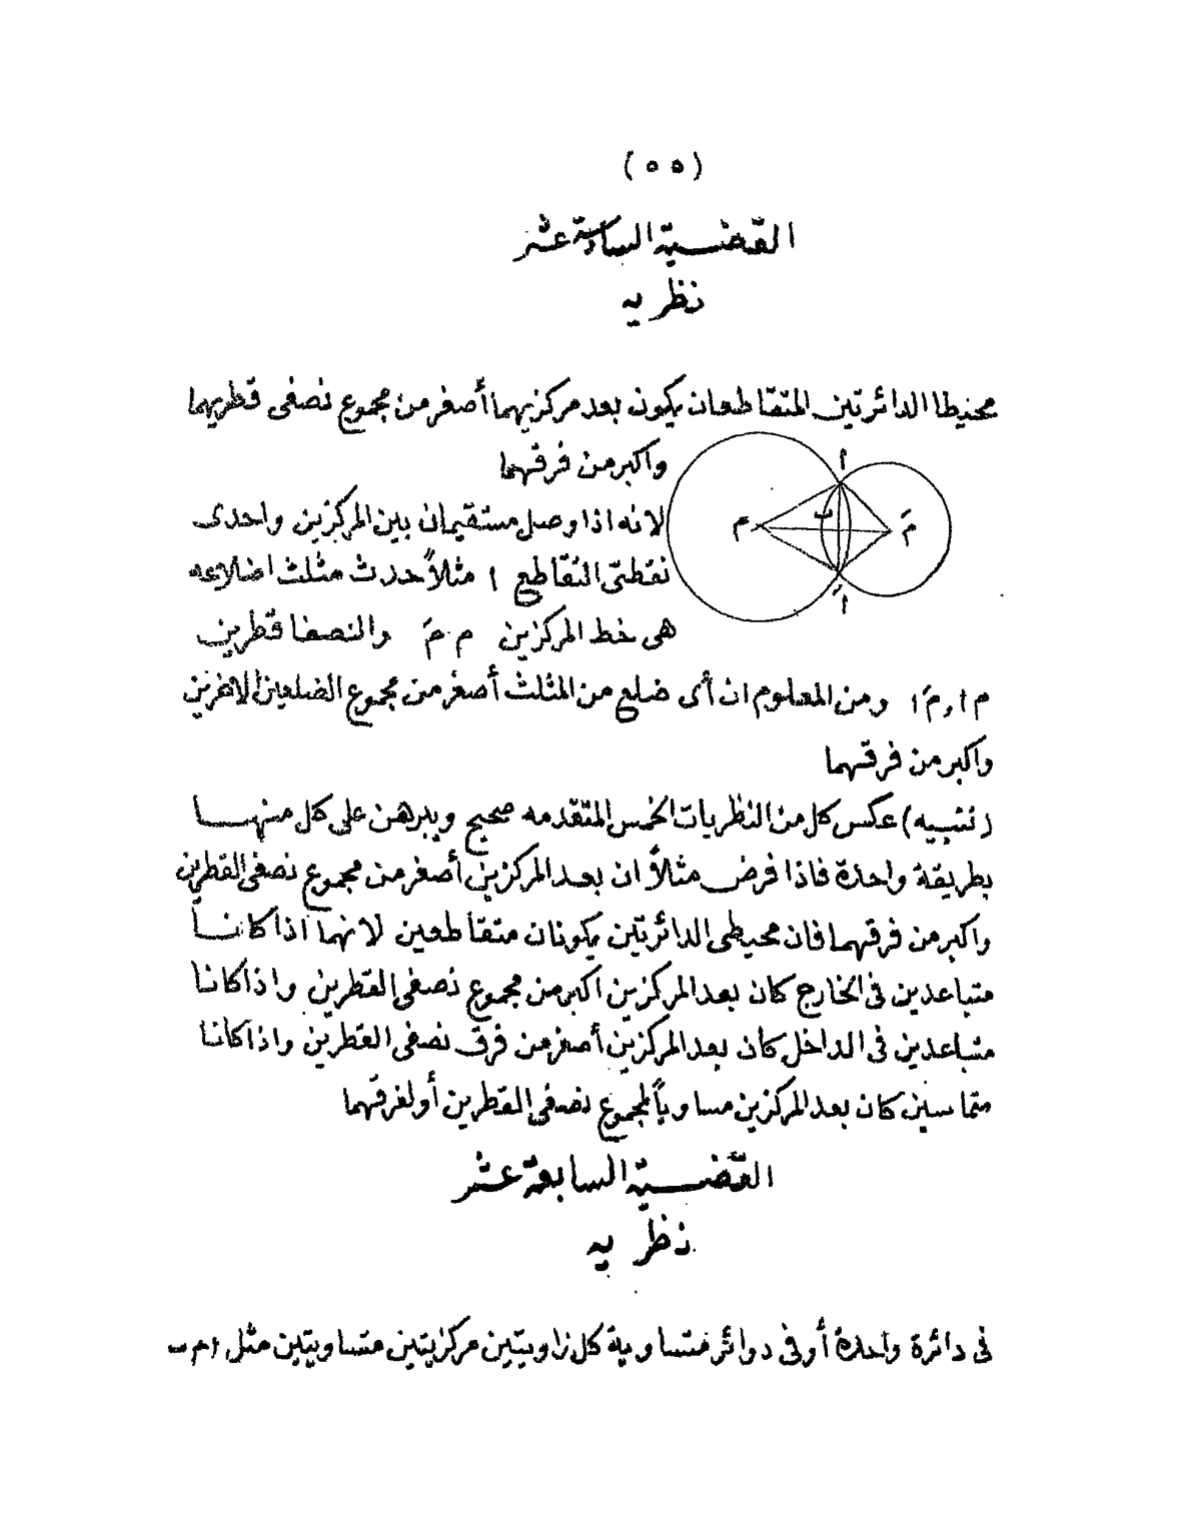 (٥٥)
القضية السادسة عشر
نظريه
محيطا الدائرتين المتقاطعان يكون بعد مركزيهما أصغر من مجموع نصفى قطريهما
واكبر من فرقهما
لانه اذا وصل مستقيمان بين المركزين واحدى
نقطتى التقاطع ا مثلاً حدث مثلث اضلاعه
هى خط المركزين م مَ والنصفا قطرين
م ا , مَ ا ومن المعلوم ان أى ضلع من المثلث أصغر من مجموع الضلعين الاخرين
واكبر من فرقهما
(تنبيه) عكس كل من النظريات الخمس المتقدمه صحيح ويبرهن على كل منها
بطريقة واحدة فاذا فرض مثلاً ان بعد المركزين أصغر من مجموع نصفى القطرين
واكبر من فرقهما فان محيطى الدائرتين يكونان متقاطعين لانهما اذا كانا
متباعدين فى الخارج كان بعد المركزين اكبر من مجموع نصفى القطرين واذا كانا
متباعدين فى الداخل كان بعد المركزين أصغر من فرق نصفى القطرين واذا كانا
متماسين كان بعد المركزين مساوياً لمجموع نصفى القطرين أو لفرقهما
القضية السابعة عشر
نظريه
فى دائرة واحدة أو فى دوائر متساوية كل زاويتين مركزيتين متساويتين مثل ا م ب
ا
ب
م
مَ
اَ